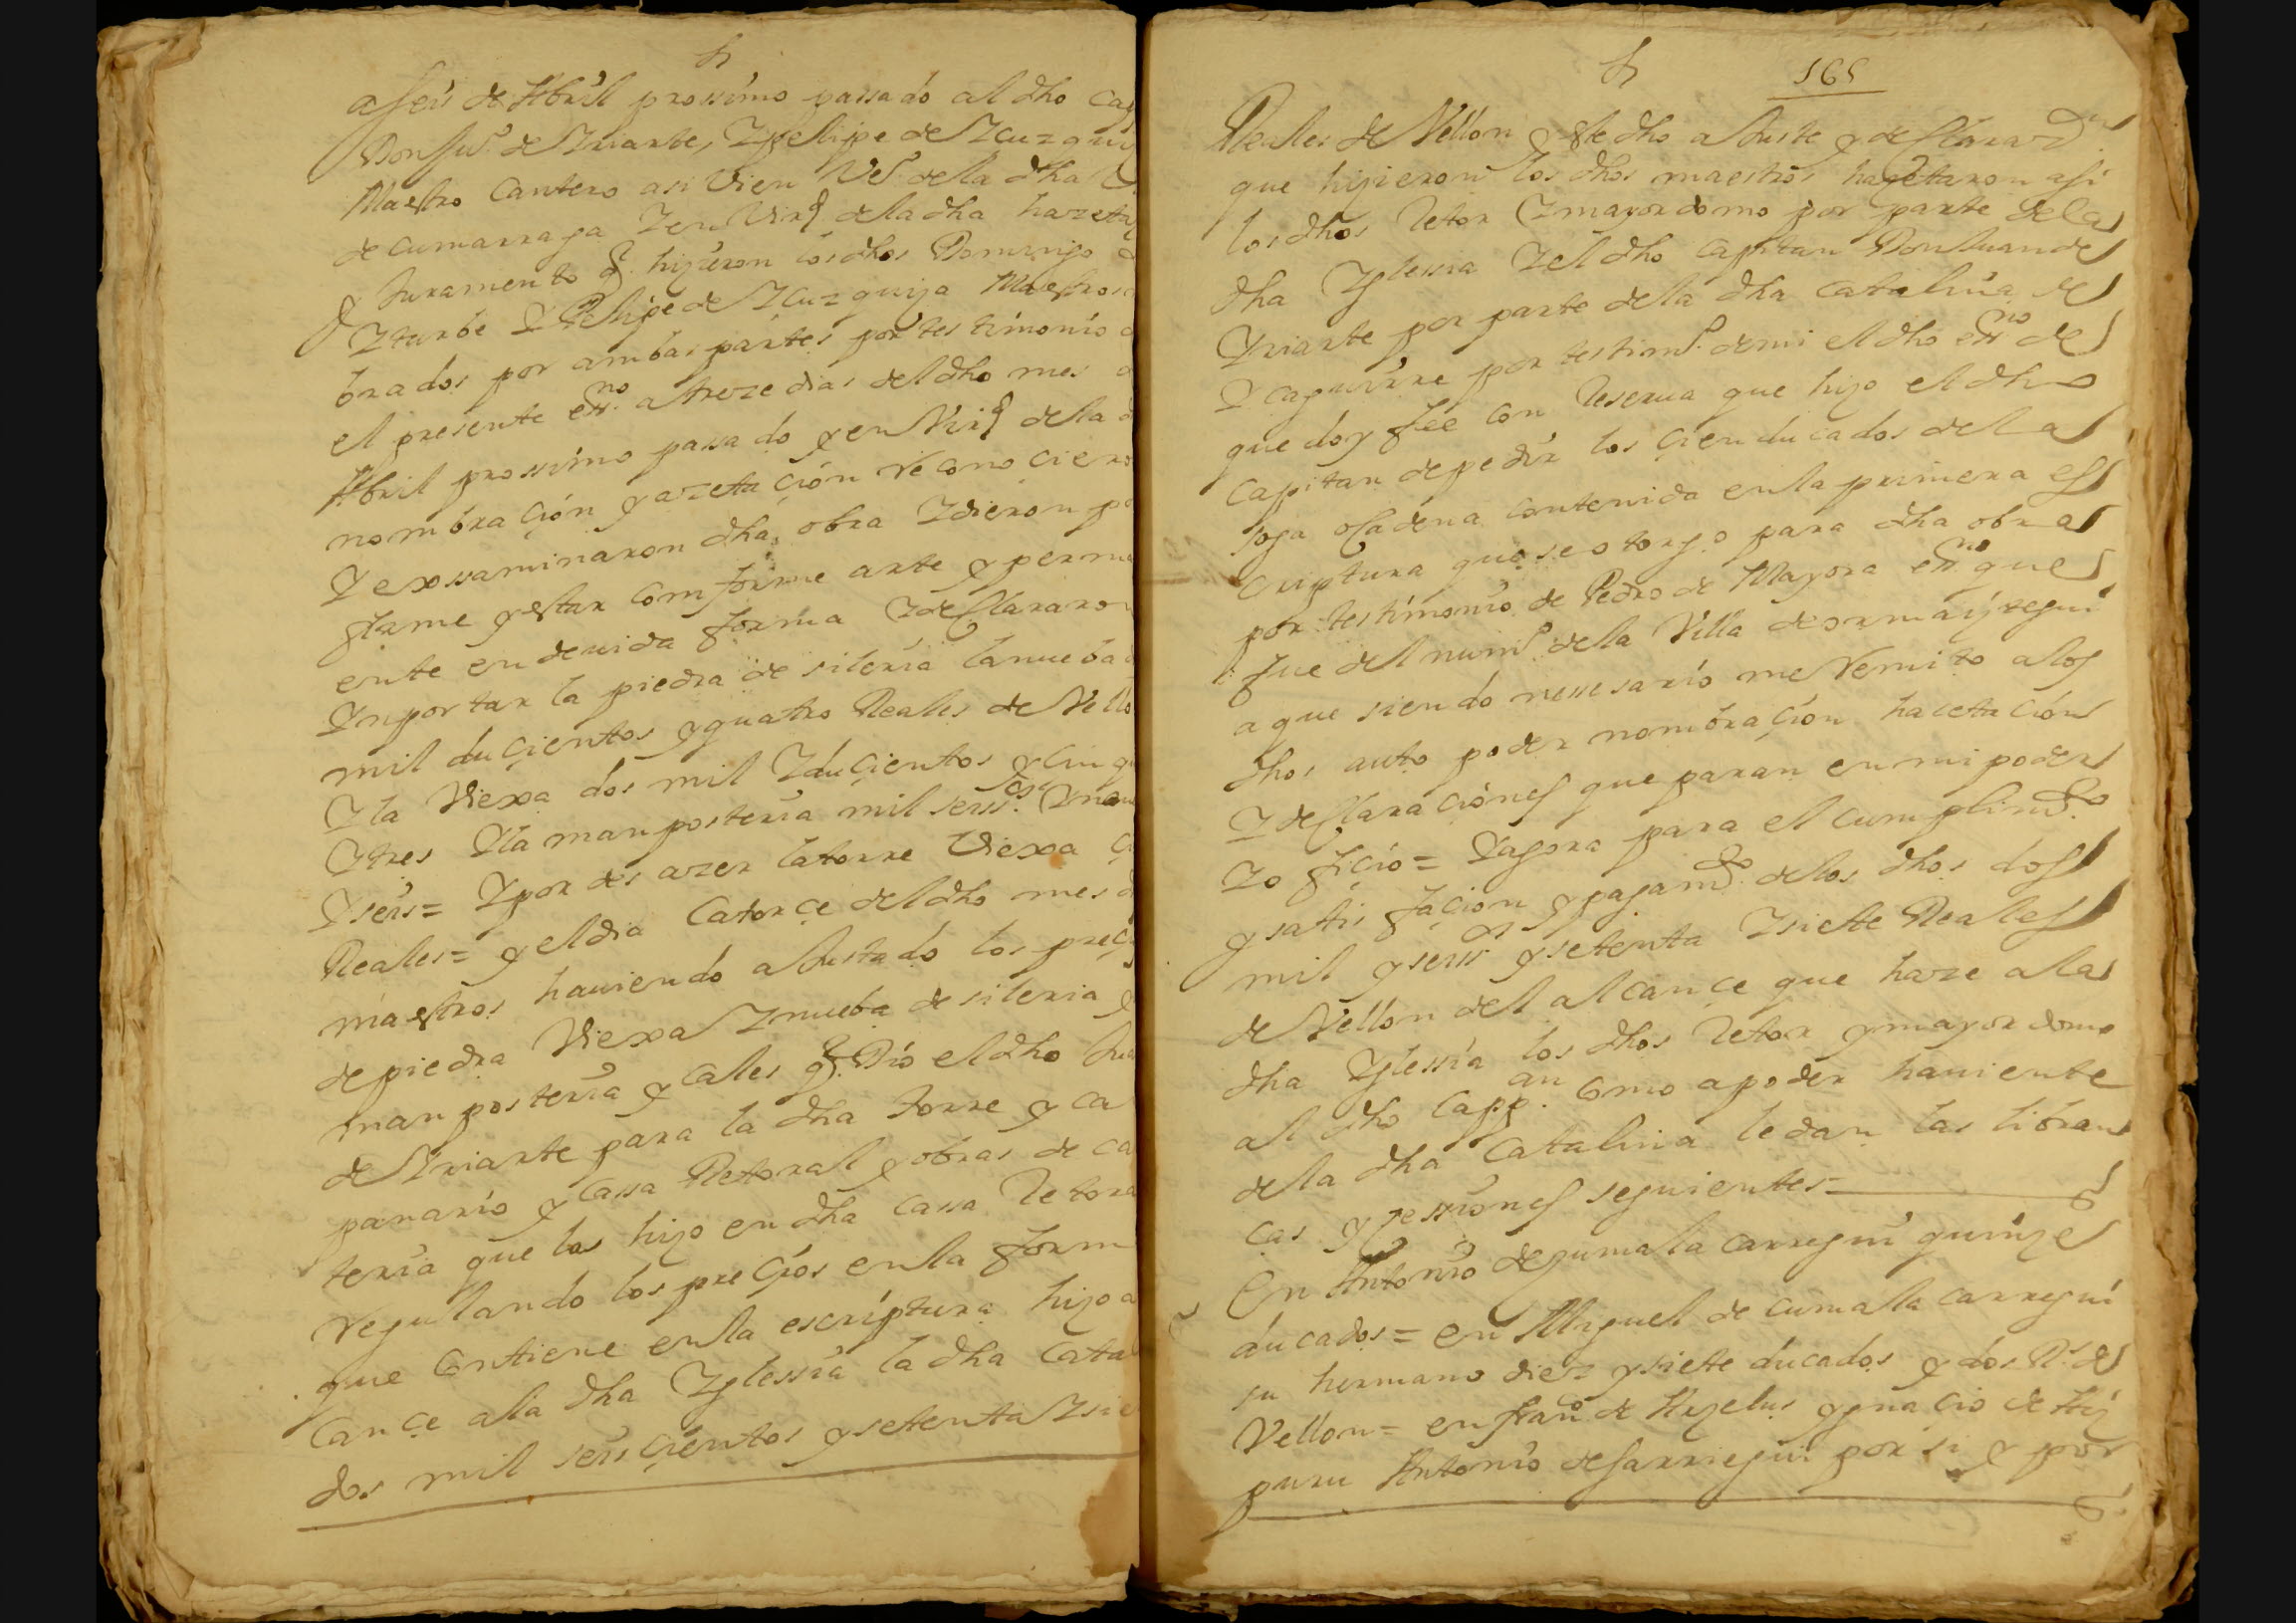 a seis de Abril prossimo passado al dho
Don Juº de Yriarte, Y felipe de Ycuzqui
Maestro Cantero asi Vien Vºˢ de la dha
de cumarraga Y en Virᵈ de la dha hazeta
Y Juramento q. hizieron los dhos Domingo
Yturbe Y Phelipe de Ycuzquiza Maestros
brados por ambas partes por testimonio
el presente essⁿᵒ a treze dias del dho mes
Abril prossimo passado y en Virᵈ de la
nombraçión y azetaçión reconociero
Y exssaminaron dha obra Y dieron po
firme y estar comforme arte y perma
ente en devida forma Y declararon
Ynportar la piedra de sileria la nueba
mil duçientos y quatro Reales de Vello
Y la Viexa dos mil Y duçientos y cinq
Y tres Y la manposteria mil seisºˢ
Y seis = Y por des azer la torre Viexa
Reales = y el dia Catorçe del dho mes
maestros haviendo aJustado los preçi
de piedra Viexa Y nueba de sileria y
manposteria y cales q. Dió el dho Jua
de Yriarte para la dha torre y ca
panario y Cassa Retoral y obras de ca
teria que las hizo en dha cassa Retora
regulando los preçiós en la form
que Contiene en la escriptura hizo a
Cançe a la dha Yglessia la dha Cata
dos mil seisçientos y setenta Y sie
165
Reales de Vellon y este dho aJuste y declaraz.ᵒⁿ
que hizieron los dhos maestros hazetaron asi
los dhos Retor Y mayordomo por parte de la
dha Yglessia Y el dho Capitan Don Juan de
Yriarte por parte de la dha Catalina de
Ycaguirre por testimº de mi el dho essⁿᵒ de
que doy fee con Reserva que hizo el dho
Capitan de pedir los çien ducados de la
soga o Cadena Contenida en la primera es
criptura que se otorgo para dha obra
por testimonio de Pedro de Mayora essⁿᵒ que
fue del numº de la Villa de ormaiztegui
a que siendo nessesario me Remito a los
dhos auto poder nombraçion hacetaçión
Y declaraçiónes que paran en mi poder
Y ofiçio = Y agora para el cumplimᵗᵒ
y satisfaçion y pagamᵗᵒ de los dhos dos
mil y seisºˢ y setenta Y siete Reales
de Vellon del alcançe que haze a la
dha Yglessia los dhos Retor y mayordomo
al dho Cappᵃⁿ como a poder haviente
de la dha Catalina le dan las libran
ças y çessiones seguientes =
En Antonio de gumalacarregui quinze
ducados = en Miguel de cumalacarregui
su hermano diez y siete ducados y dos Rˢ de
Vellon = en franᶜᵒ de Ayzelus y ygnaçio de Aiz
puru Antonio de sarriegui por si y por